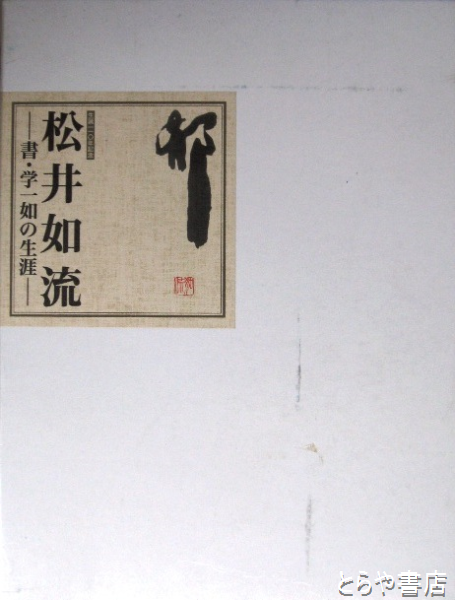 生誕一一〇年記念
松井如流
―書・学一如の生涯―
とらや書店